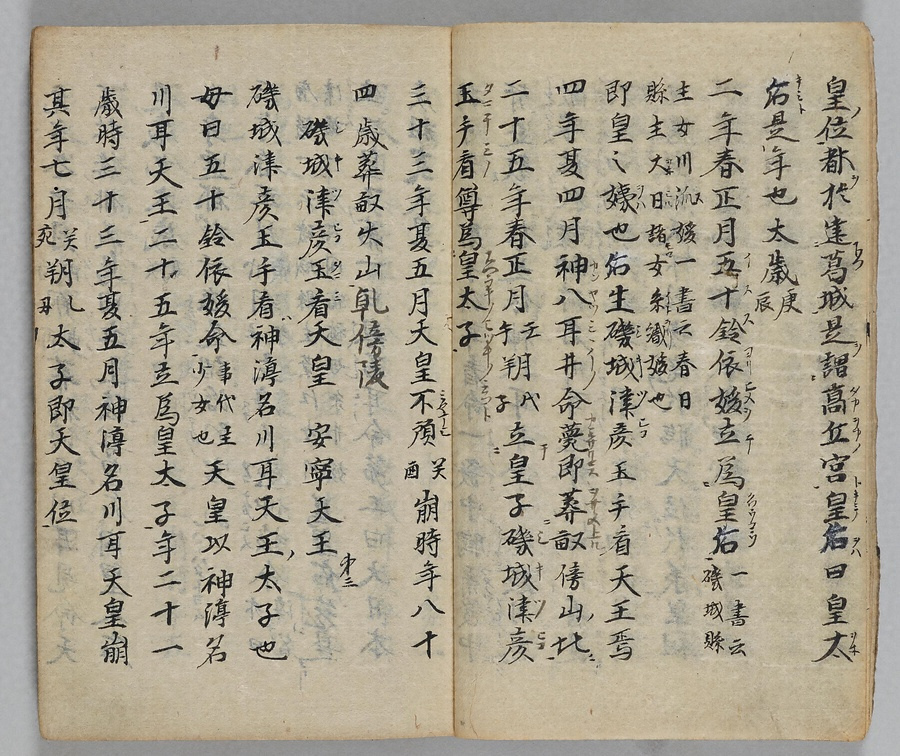 皇位都於葛城是謂高丘宮皇后曰皇太
后是年也太歲庚辰
二年春正月五十鈴依媛立為皇后一書云磯城縣
主女川派媛一書云春日
縣主大日諸女糸織媛也
即皇之嬢也后生磯城津彦玉手看天王焉
四年夏四月神八耳井命薨即葬畝傍山北
二十五年春正月壬午朔戊子立皇子磯城津彦
玉手看尊為皇太子
三十三年夏五月天皇不預癸酉崩時年八十
四歲葬畝火山乾傍陵
磯城津彦玉看天皇 安寧天王 第三
磯城津彦玉手看神渟名川耳天王太子也
母曰五十鈴依媛命事代主少女也天皇以神渟名
川耳天王二十五年立為皇太子年二十一
歲時三十三年夏五月神渟名川耳天皇崩
其年七月癸亥朔乙丑太子即天皇位